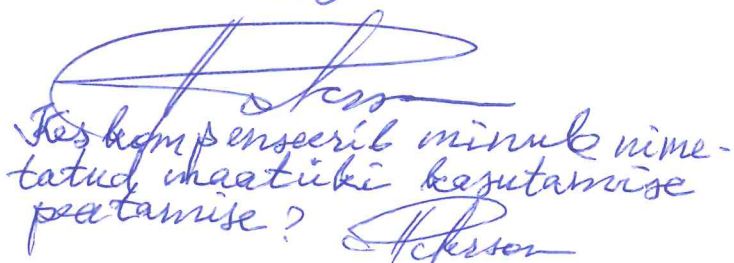 Kes kompenseerib minule nime-
tatud maatüki kasutamise
peatamise?